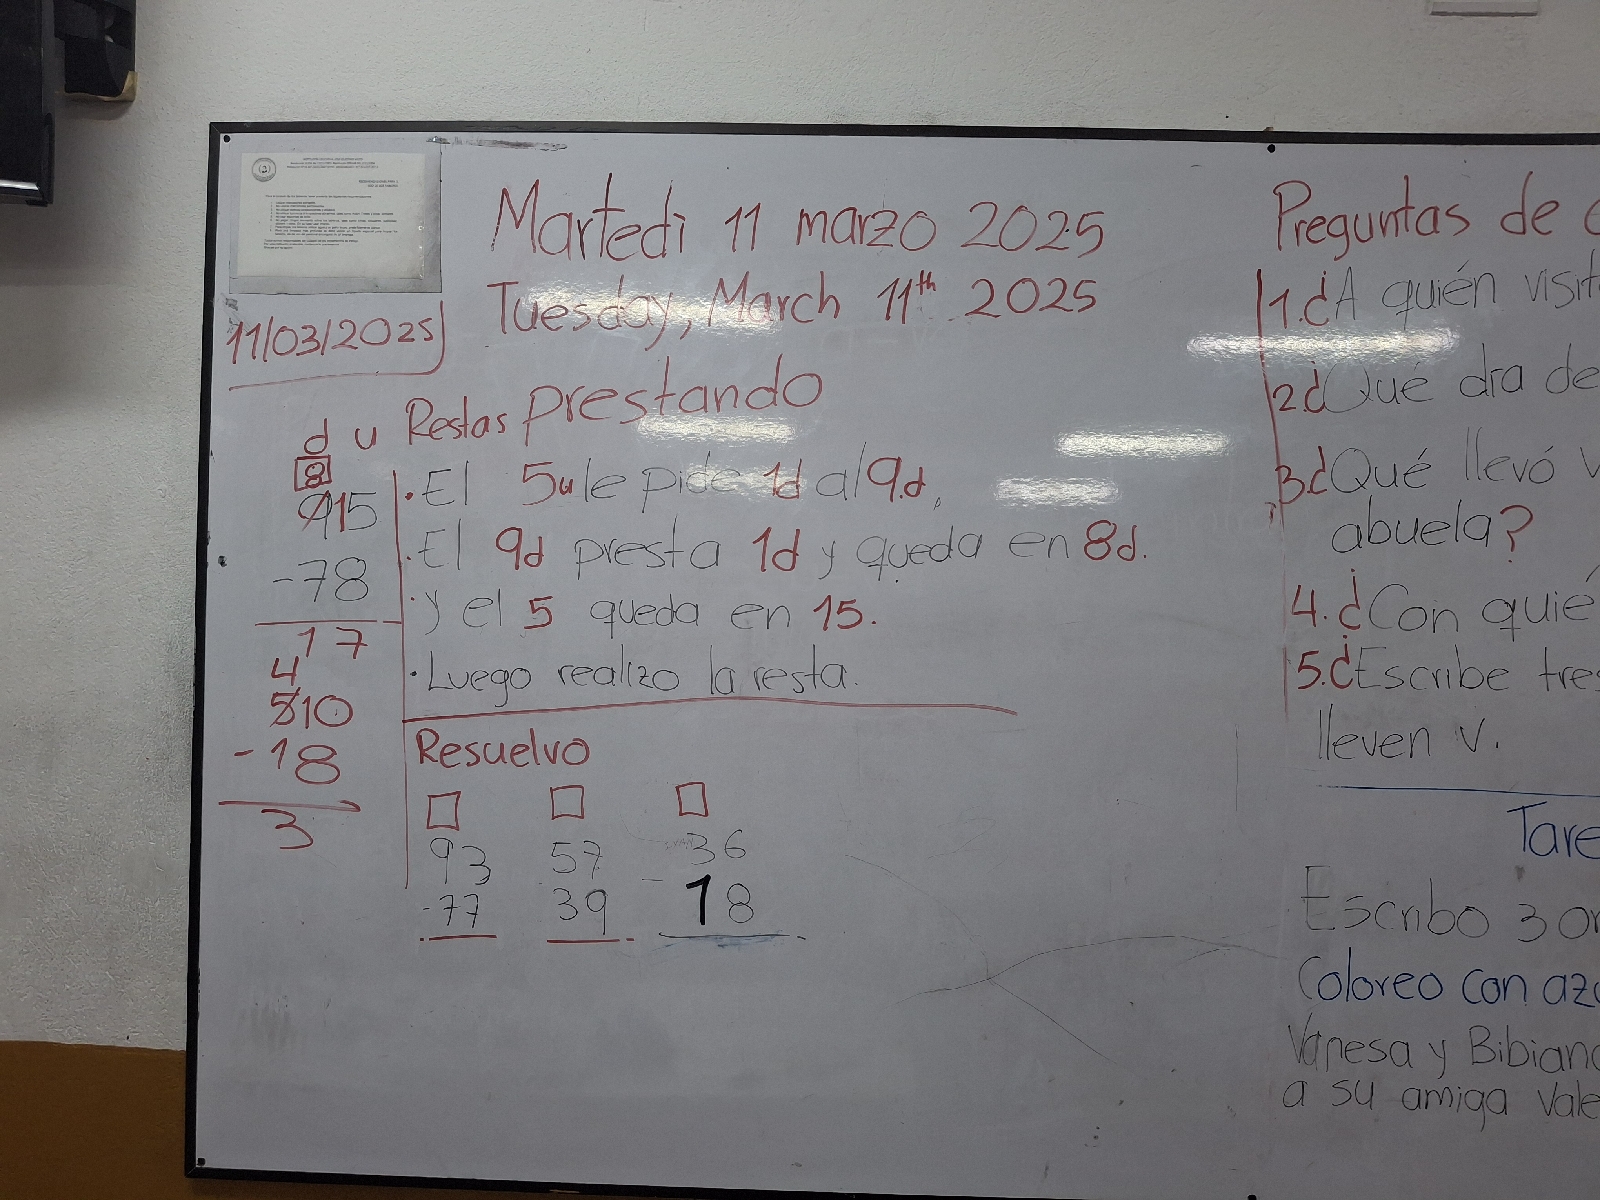 Martedì 11 marzo 2025
Tuesday, March 11th 2025
11/03/2025
Restas prestando
d u
8
915
-78
17
· El 5u le pide 1d al 9d,
· El 9d presta 1d y queda en 8d.
· y el 5 queda en 15.
· Luego realizo la resta.
4
510
-18
3
Resuelvo
93 57 36
-77 39 - 18
Preguntas de
1. ¿A quién visit
2. ¿Qué día de
3. ¿Qué llevó V
abuela?
4. ¿Con quié
5. ¿Escribe tres
lleven v.
Tare
Escribo 3 or
Coloreo con azu
Vanesa y Bibiana
a su amiga Vale